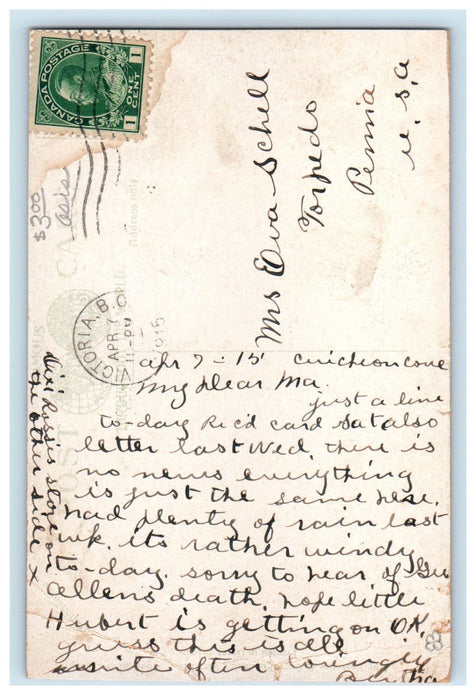 CANADA POSTAGE
ONE CENT
1 1
$3.00
asis
Mrs Eva Schell
Torpedo
Penna
U.S.A
VICTORIA, B.C.
APR 7
11-PM
1915
POST CARD
Address only
apr 7-15
My Dear Ma.
just a line
to-day Rec'd card Sat also
letter last Wed, there is
no news everything
is just the same here.
had plenty of rain last
wk. its rather windy
to-day. sorry to hear of Geo
allens death, hope little
Hubert is getting on O.K,
guess this is all
write often lovingly
Bertha
Rossie's store on
the other side x